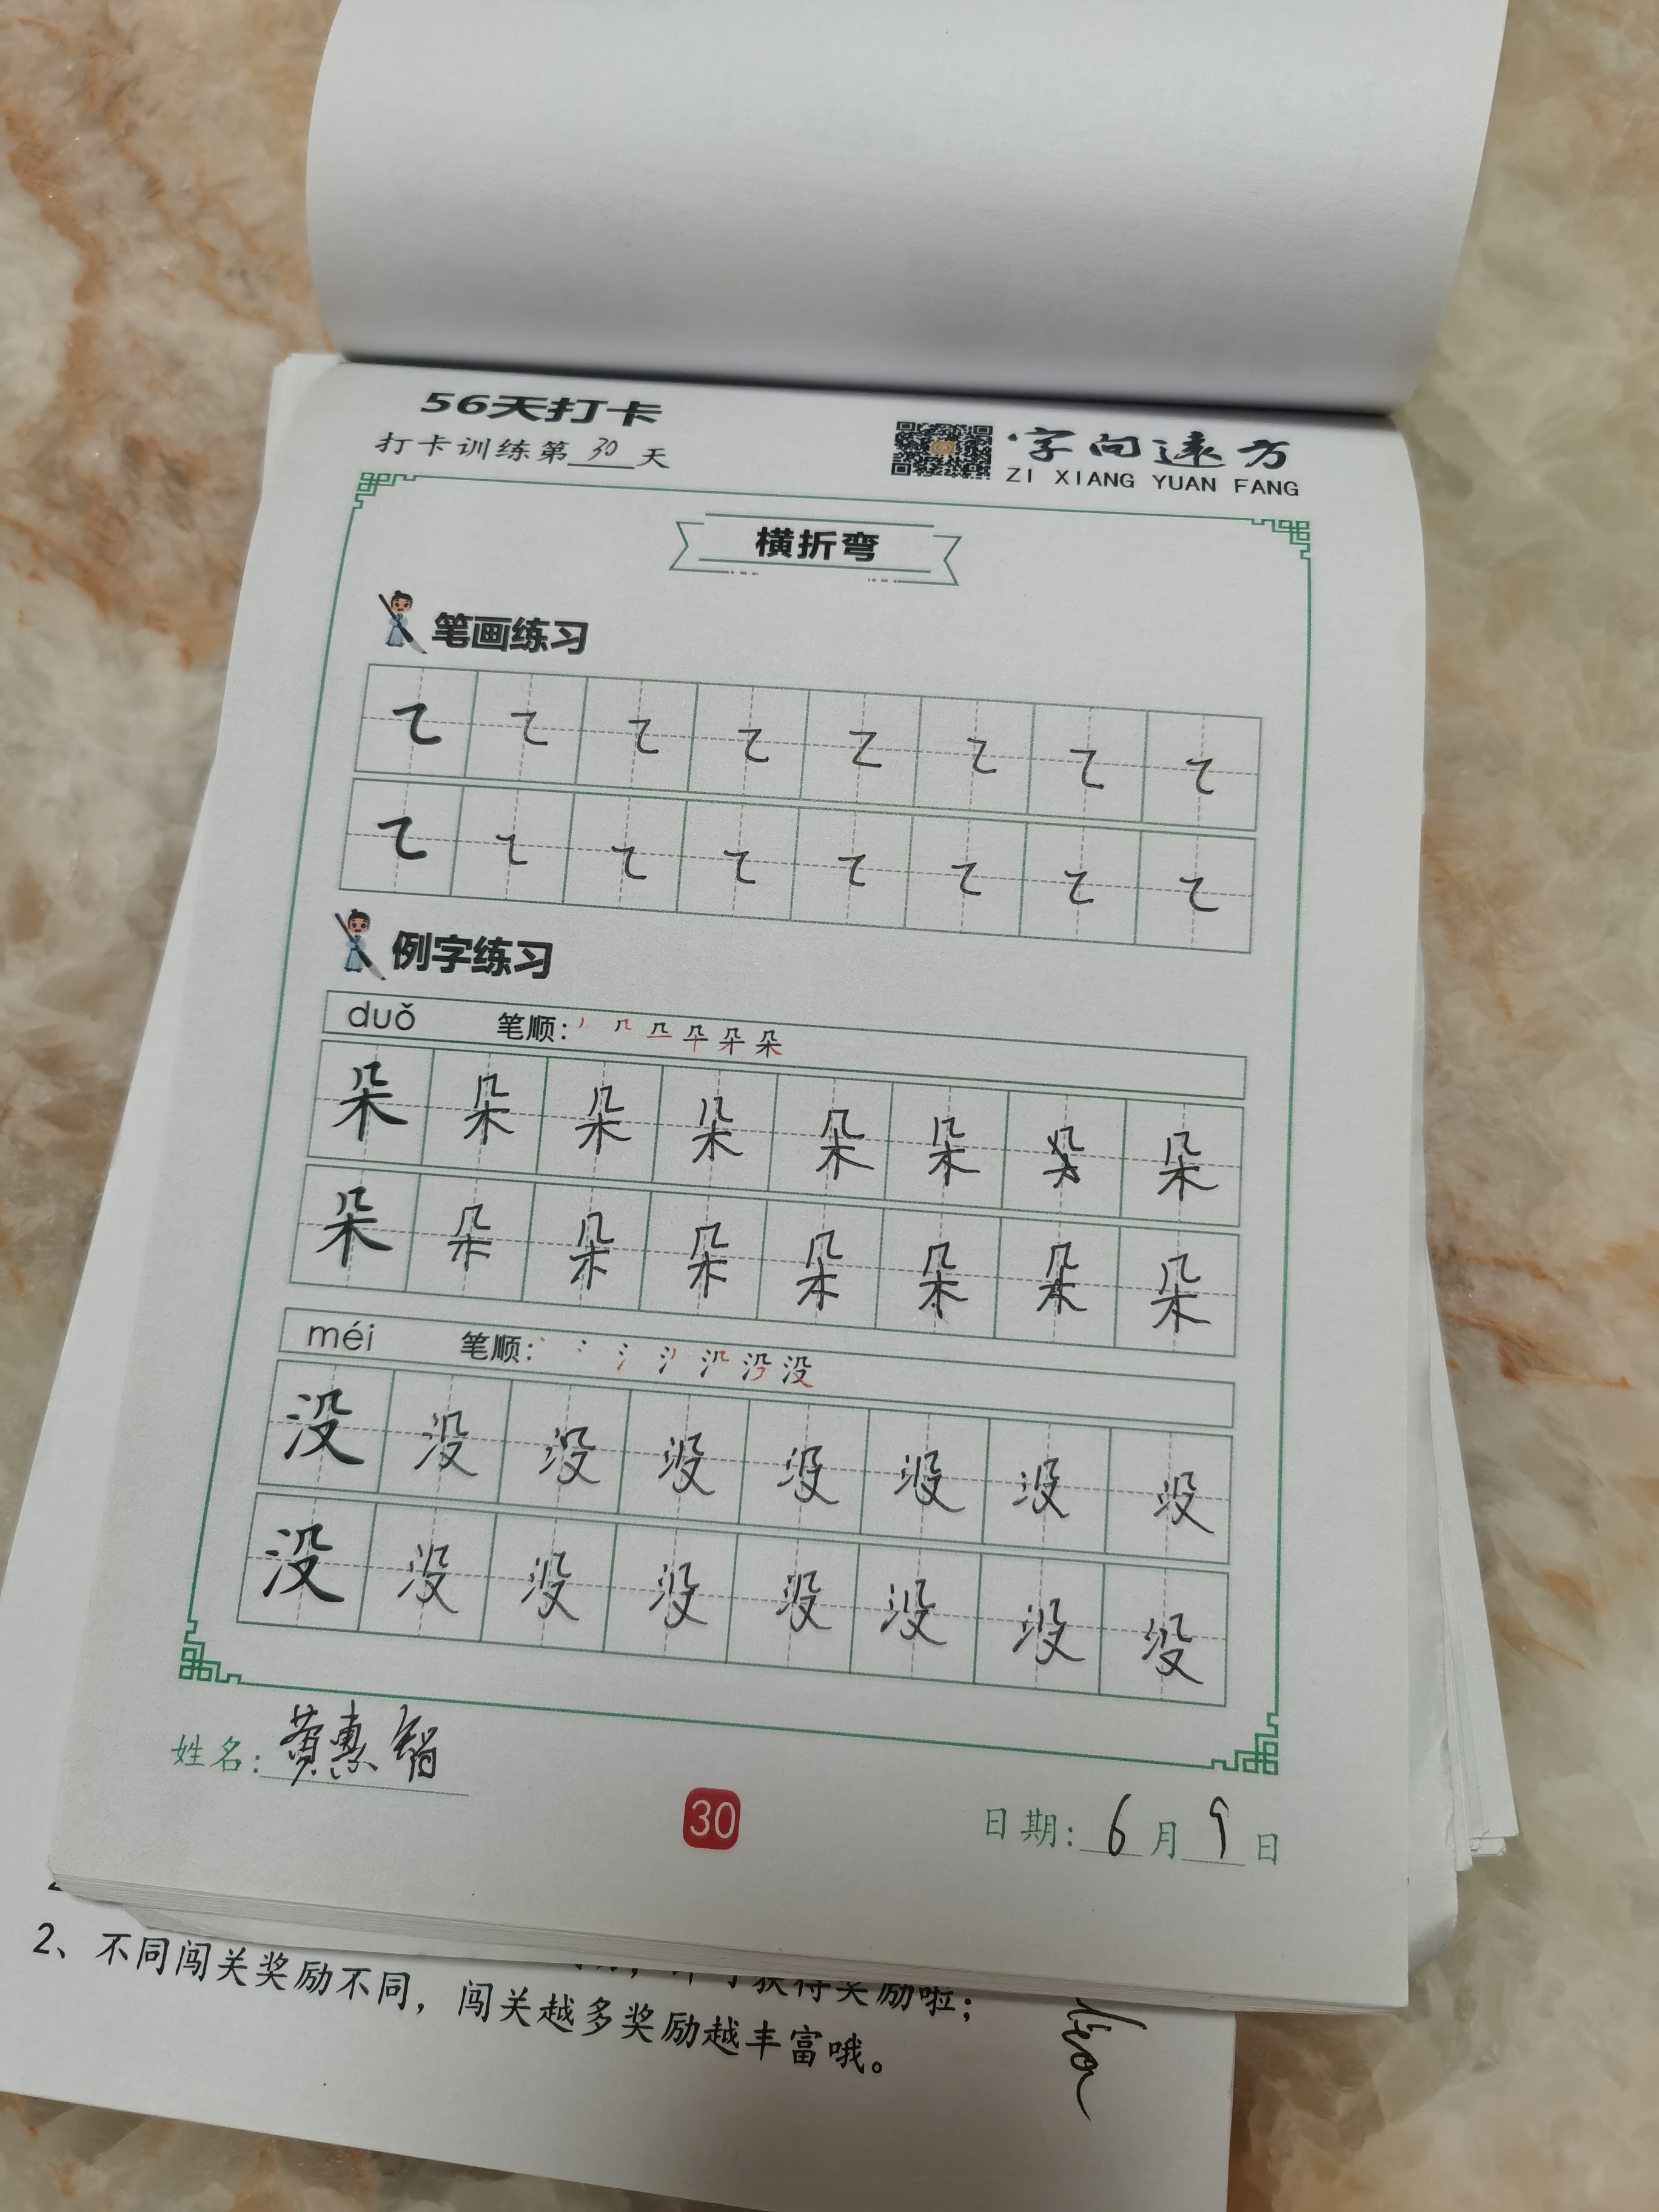 56天打卡
打卡训练第30天
字向远方
ZI XIANG YUAN FANG
横折弯
笔画练习
例字练习
duǒ 笔顺:
朵 朵 朵 朵 朵 朵 朵 朵
朵 朵 朵 朵 朵 朵 朵 朵
méi 笔顺:
没 没 没 没 没 没 没 没
没 没 没 没 没 没 没 没
姓名: 黄惠
30
日期: 6月9日
获得奖励啦;
2、不同闯关奖励不同，闯关越多奖励越丰富哦。